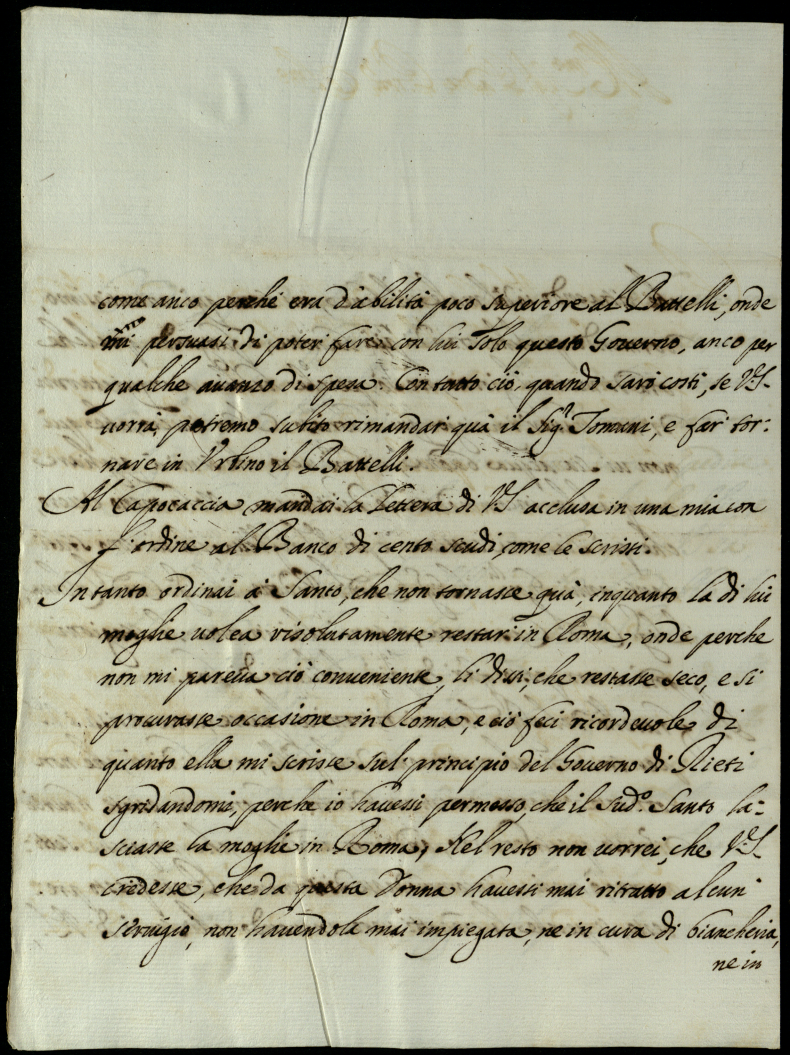 come anco perche era d'abilità poco superiore al Battelli, onde
mi ero persuasi di poter fare con lui solo questo Governo, anco per
qualche auanzo di spesa. Con tutto ciò quando sarò costì, se V.S.
uorrà, potremo subito rimandar quà il Sigr. Tomani, e far tor:
nare in Vrbino il Battelli.
Al Capocaccia mandai la lettera di V.S. acclusa in una mia con
l'ordine al Banco di cento scudi, come le scrissi.
Intanto ordinai à Santo, che non tornasse quà, inquanto la di lui
moglie uolea risolutamente restar in Roma, onde perche
non mi pareua ciò conueniente, li dissi, che restasse seco, e si
procurasse occasione in Roma, e ciò feci ricordeuole di
quanto ella mi scrisse sul principio del Gouerno di Rieti
sgridandomi, perche io hauessi permesso, che il sudo. Santo la:
sciasse la moglie in Roma, Nel resto non uorrei, che V.S.
credesse, che da questa Donna hauessi mai ritratto alcun
seruigio, non hauendola mai impiegata, ne in cura di biancheria,
ne in